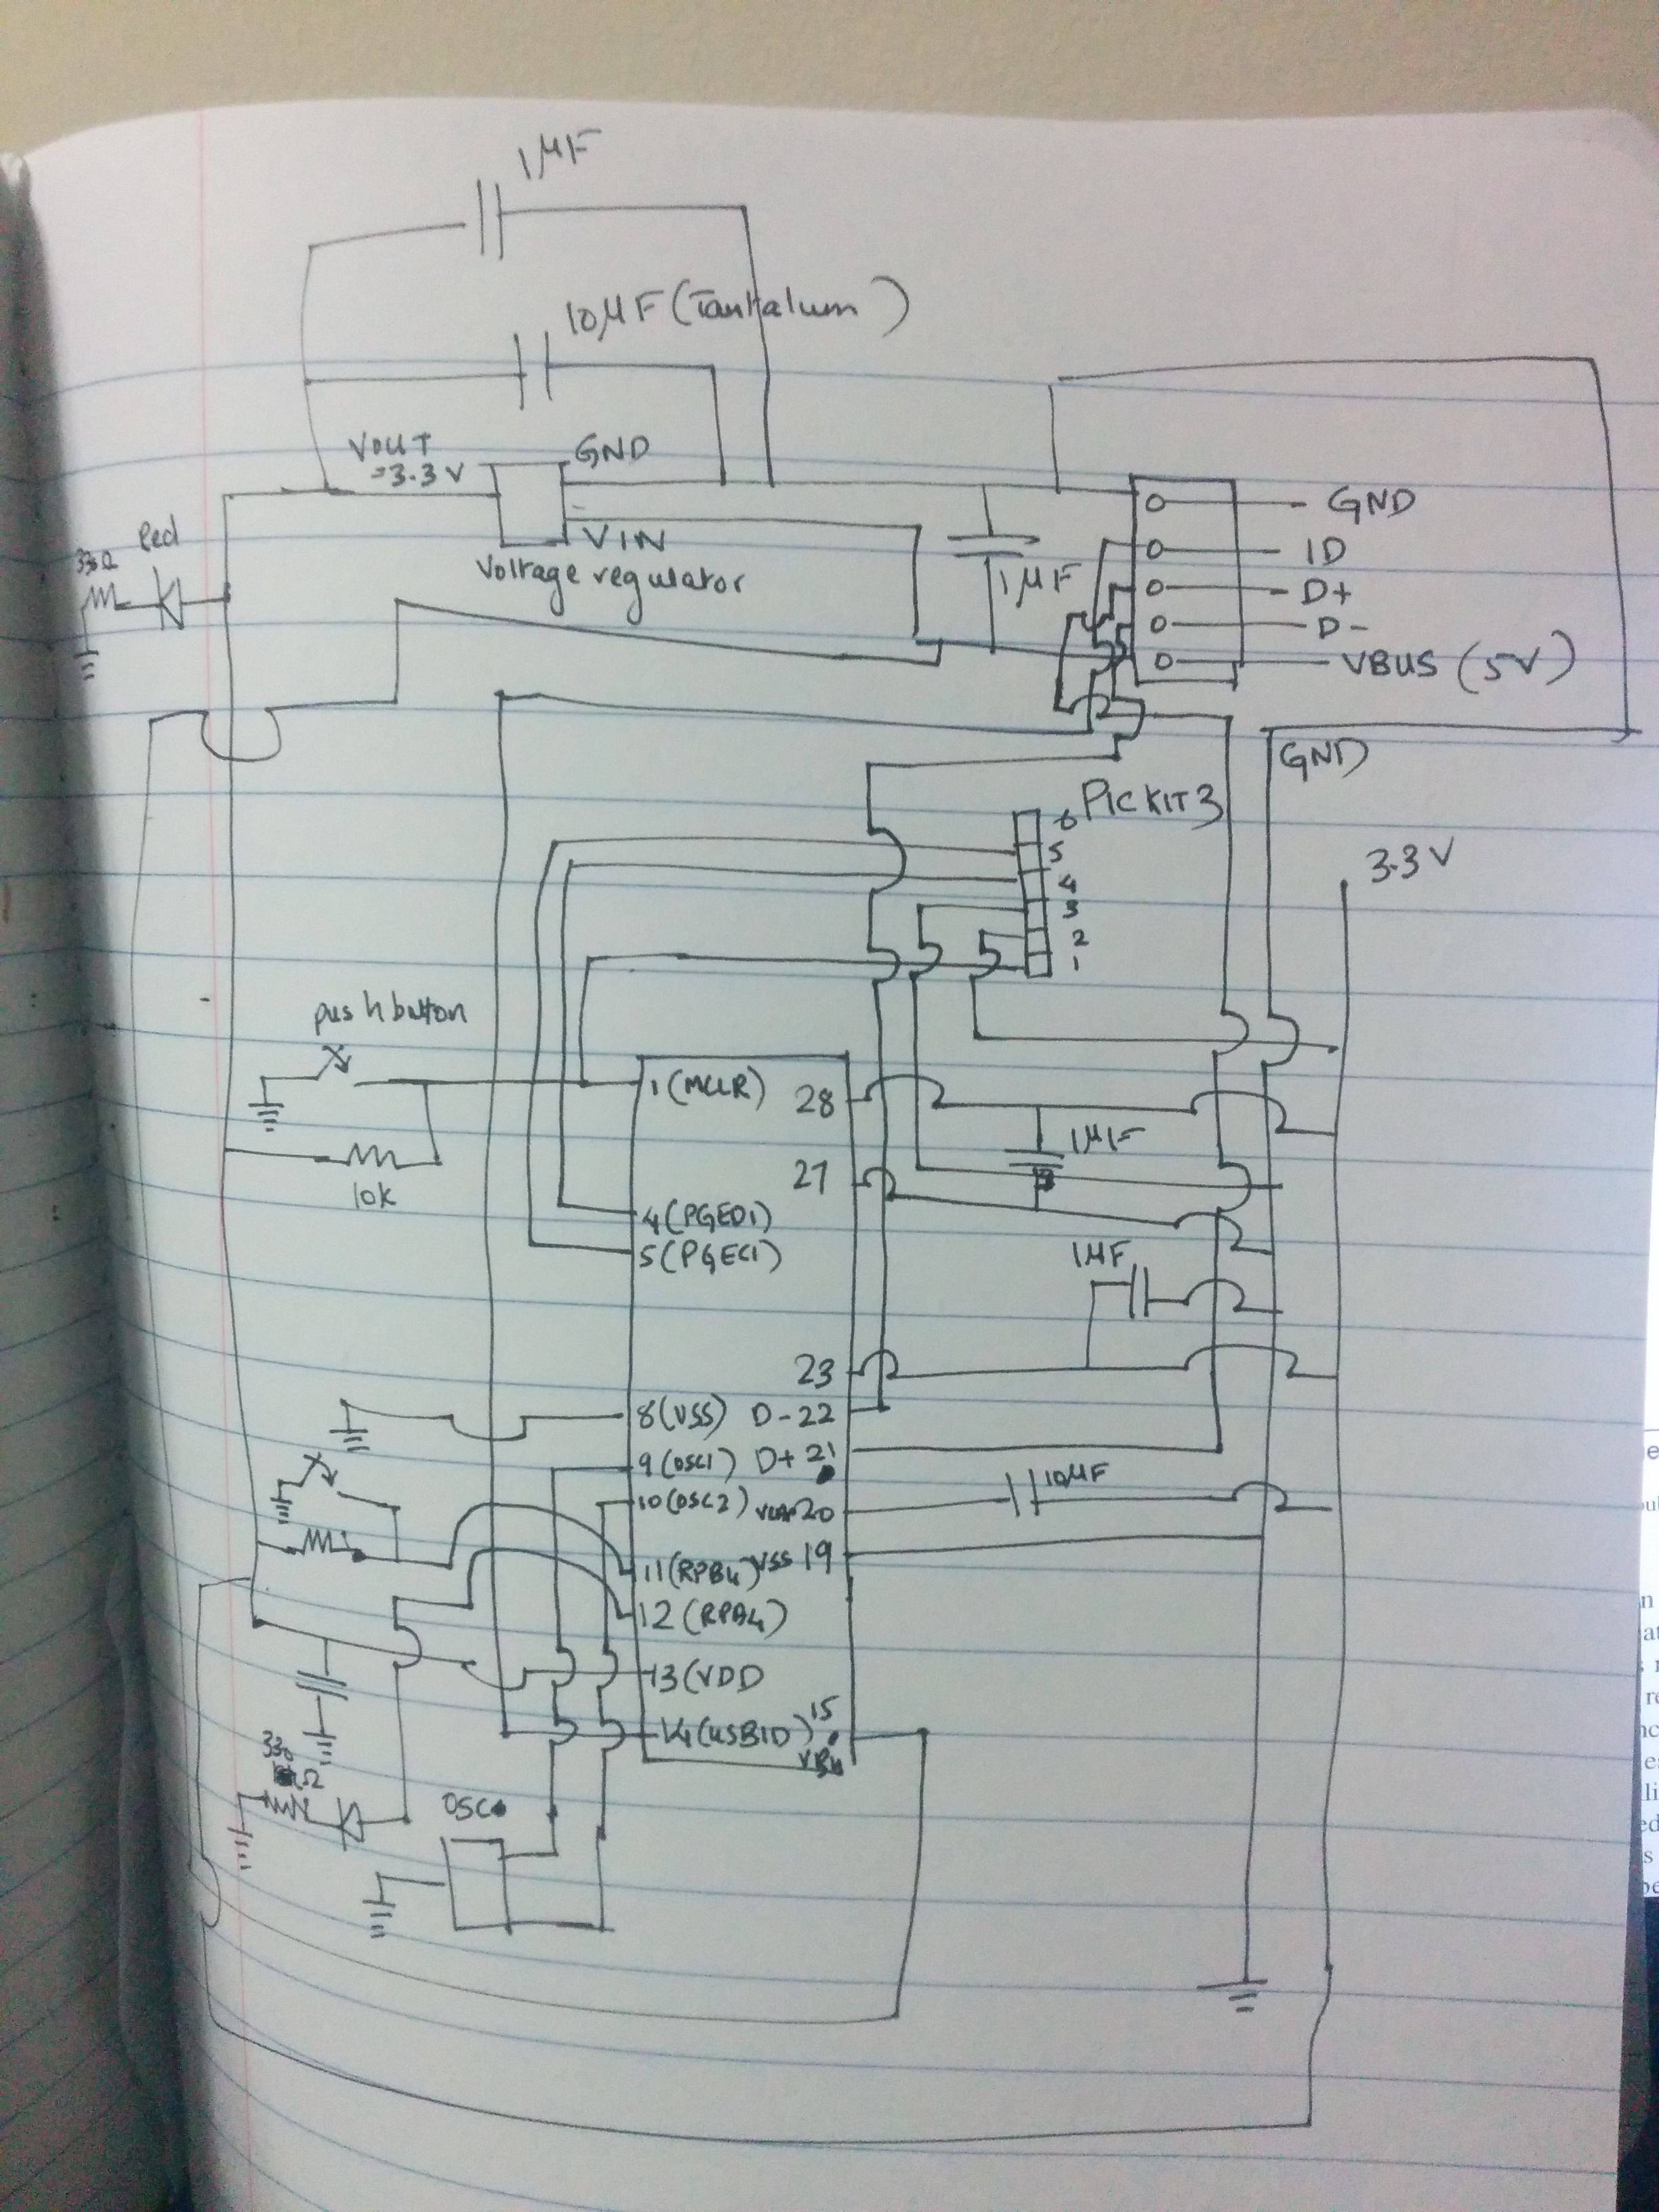 1µF
10µF (Tantalum)
VOUT
=3.3V
GND
VIN
Voltage regulator
1µF
GND
ID
D+
D-
VBUS (5V)
330Ω
led
GND
PICKIT3
6
5
4
3
2
1
3.3V
push button
10K
1(MCLR)
28
1µF
27
4(PGED1)
5(PGEC1)
1µF
23
8(VSS) D-22
9(OSC1) D+21
10(OSC2) 20
10µF
11(RPB4) VSS 19
12(RPA4)
13(VDD
14(USBID) 15
330
Ω
OSC